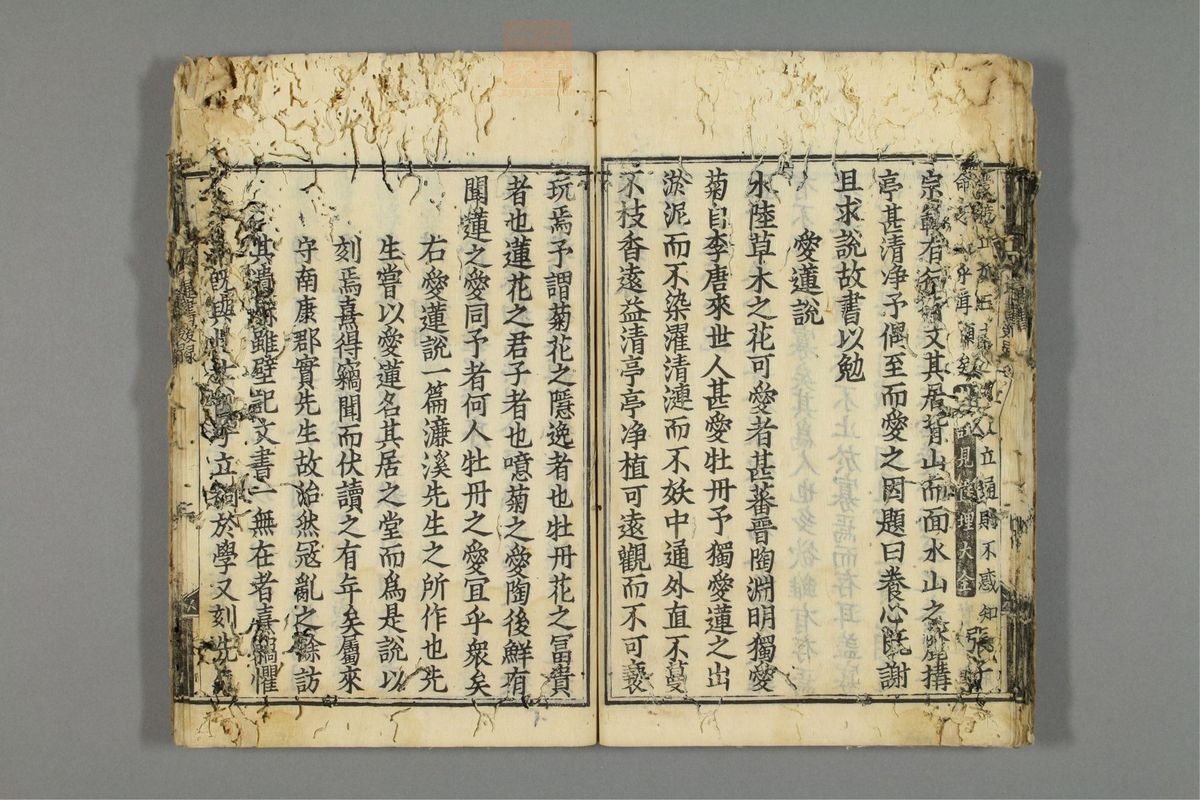 立通則不惑知張子
見性理大全
宗範有行有文其居背山而面水山之麓搆
亭甚清净予偶至而愛之因題曰養心既謝
且求説故書以勉
愛蓮説
水陸草木之花可愛者甚蕃晉陶淵明獨愛
菊自李唐來世人甚愛牡丹予獨愛蓮之出
淤泥而不染濯清漣而不妖中通外直不蔓
不枝香遠益清亭亭净植可遠觀而不可褻
玩焉予謂菊花之隱逸者也牡丹花之冨貴
者也蓮花之君子者也噫菊之愛陶後鮮有
聞蓮之愛同予者何人牡丹之愛宜乎衆矣
右愛蓮説一篇濂溪先生之所作也先
生嘗以愛蓮名其居之堂而爲是説以
刻焉熹得竊聞而伏讀之有年矣屬來
守南康郡實先生故治然冦亂之餘訪
其遺雖壁記文書一無在者熹竊懼
既與立祠於學又刻先